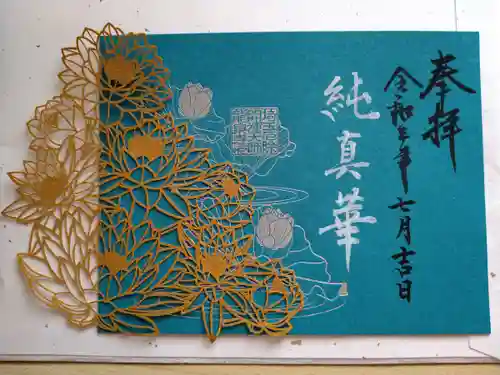 奉拝
令和五年七月吉日
純真華